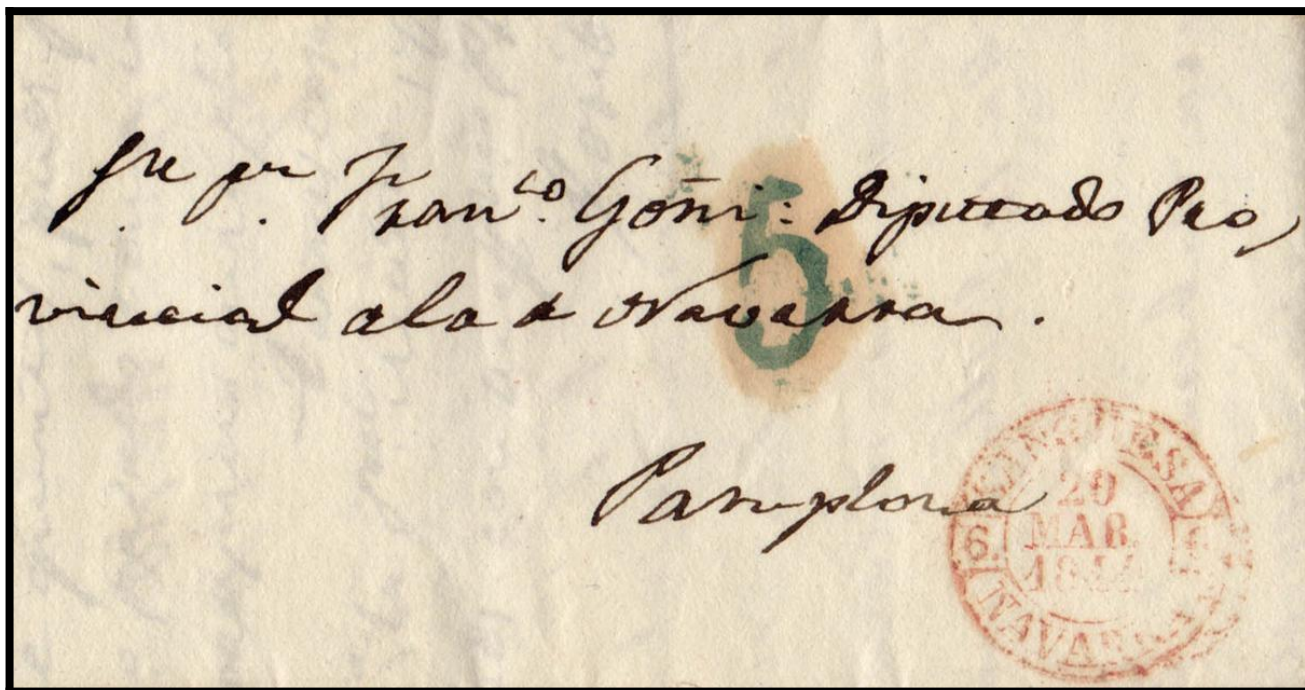 Fran.co Goñi: Diputado Pro
vincial ala de Navarra.
5
Pamplona
SANGÜESA
20
MAR.
6.
NAVARRA